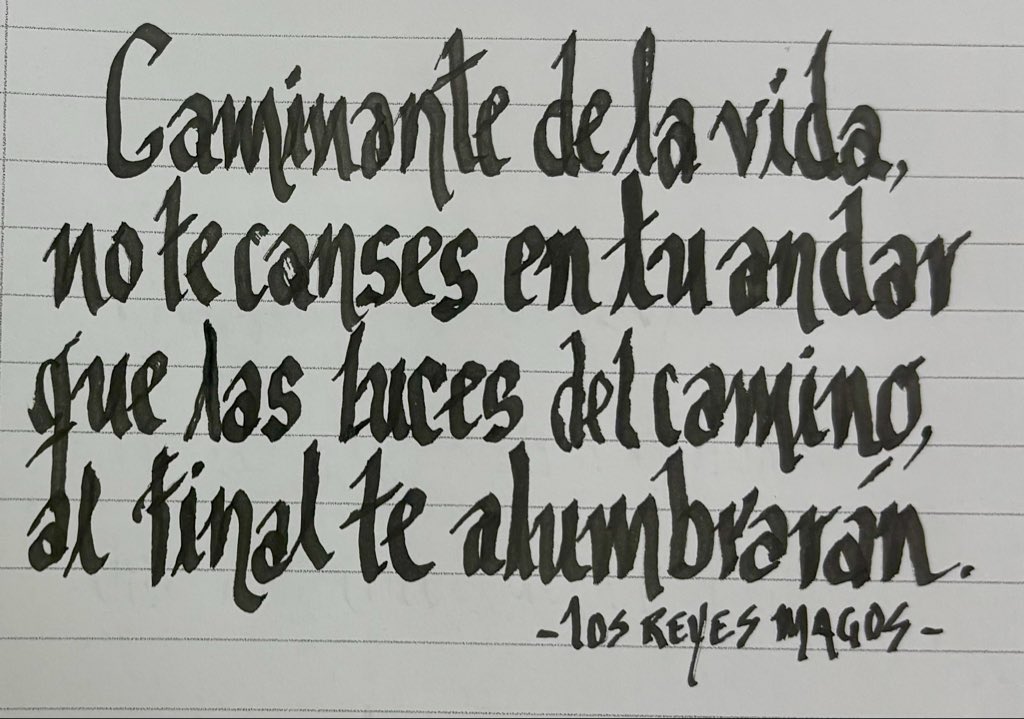 Caminante de la vida,
no te canses en tu andar
que las luces del camino,
al final te alumbrarán.
-LOS REYES MAGOS-